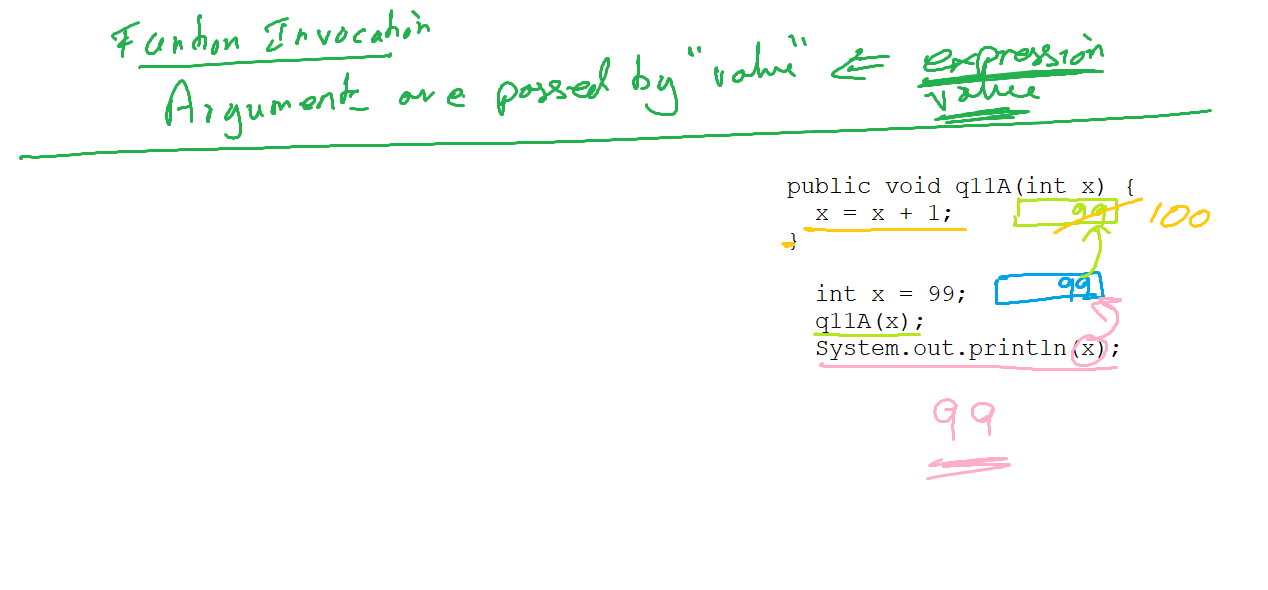 Function Invocation
Arguments are passed by "value" ⇐ expression
value
public void q11A(int x) {
x = x + 1;
99 100
}
int x = 99;
99
q11A(x);
System.out.println(x);
99